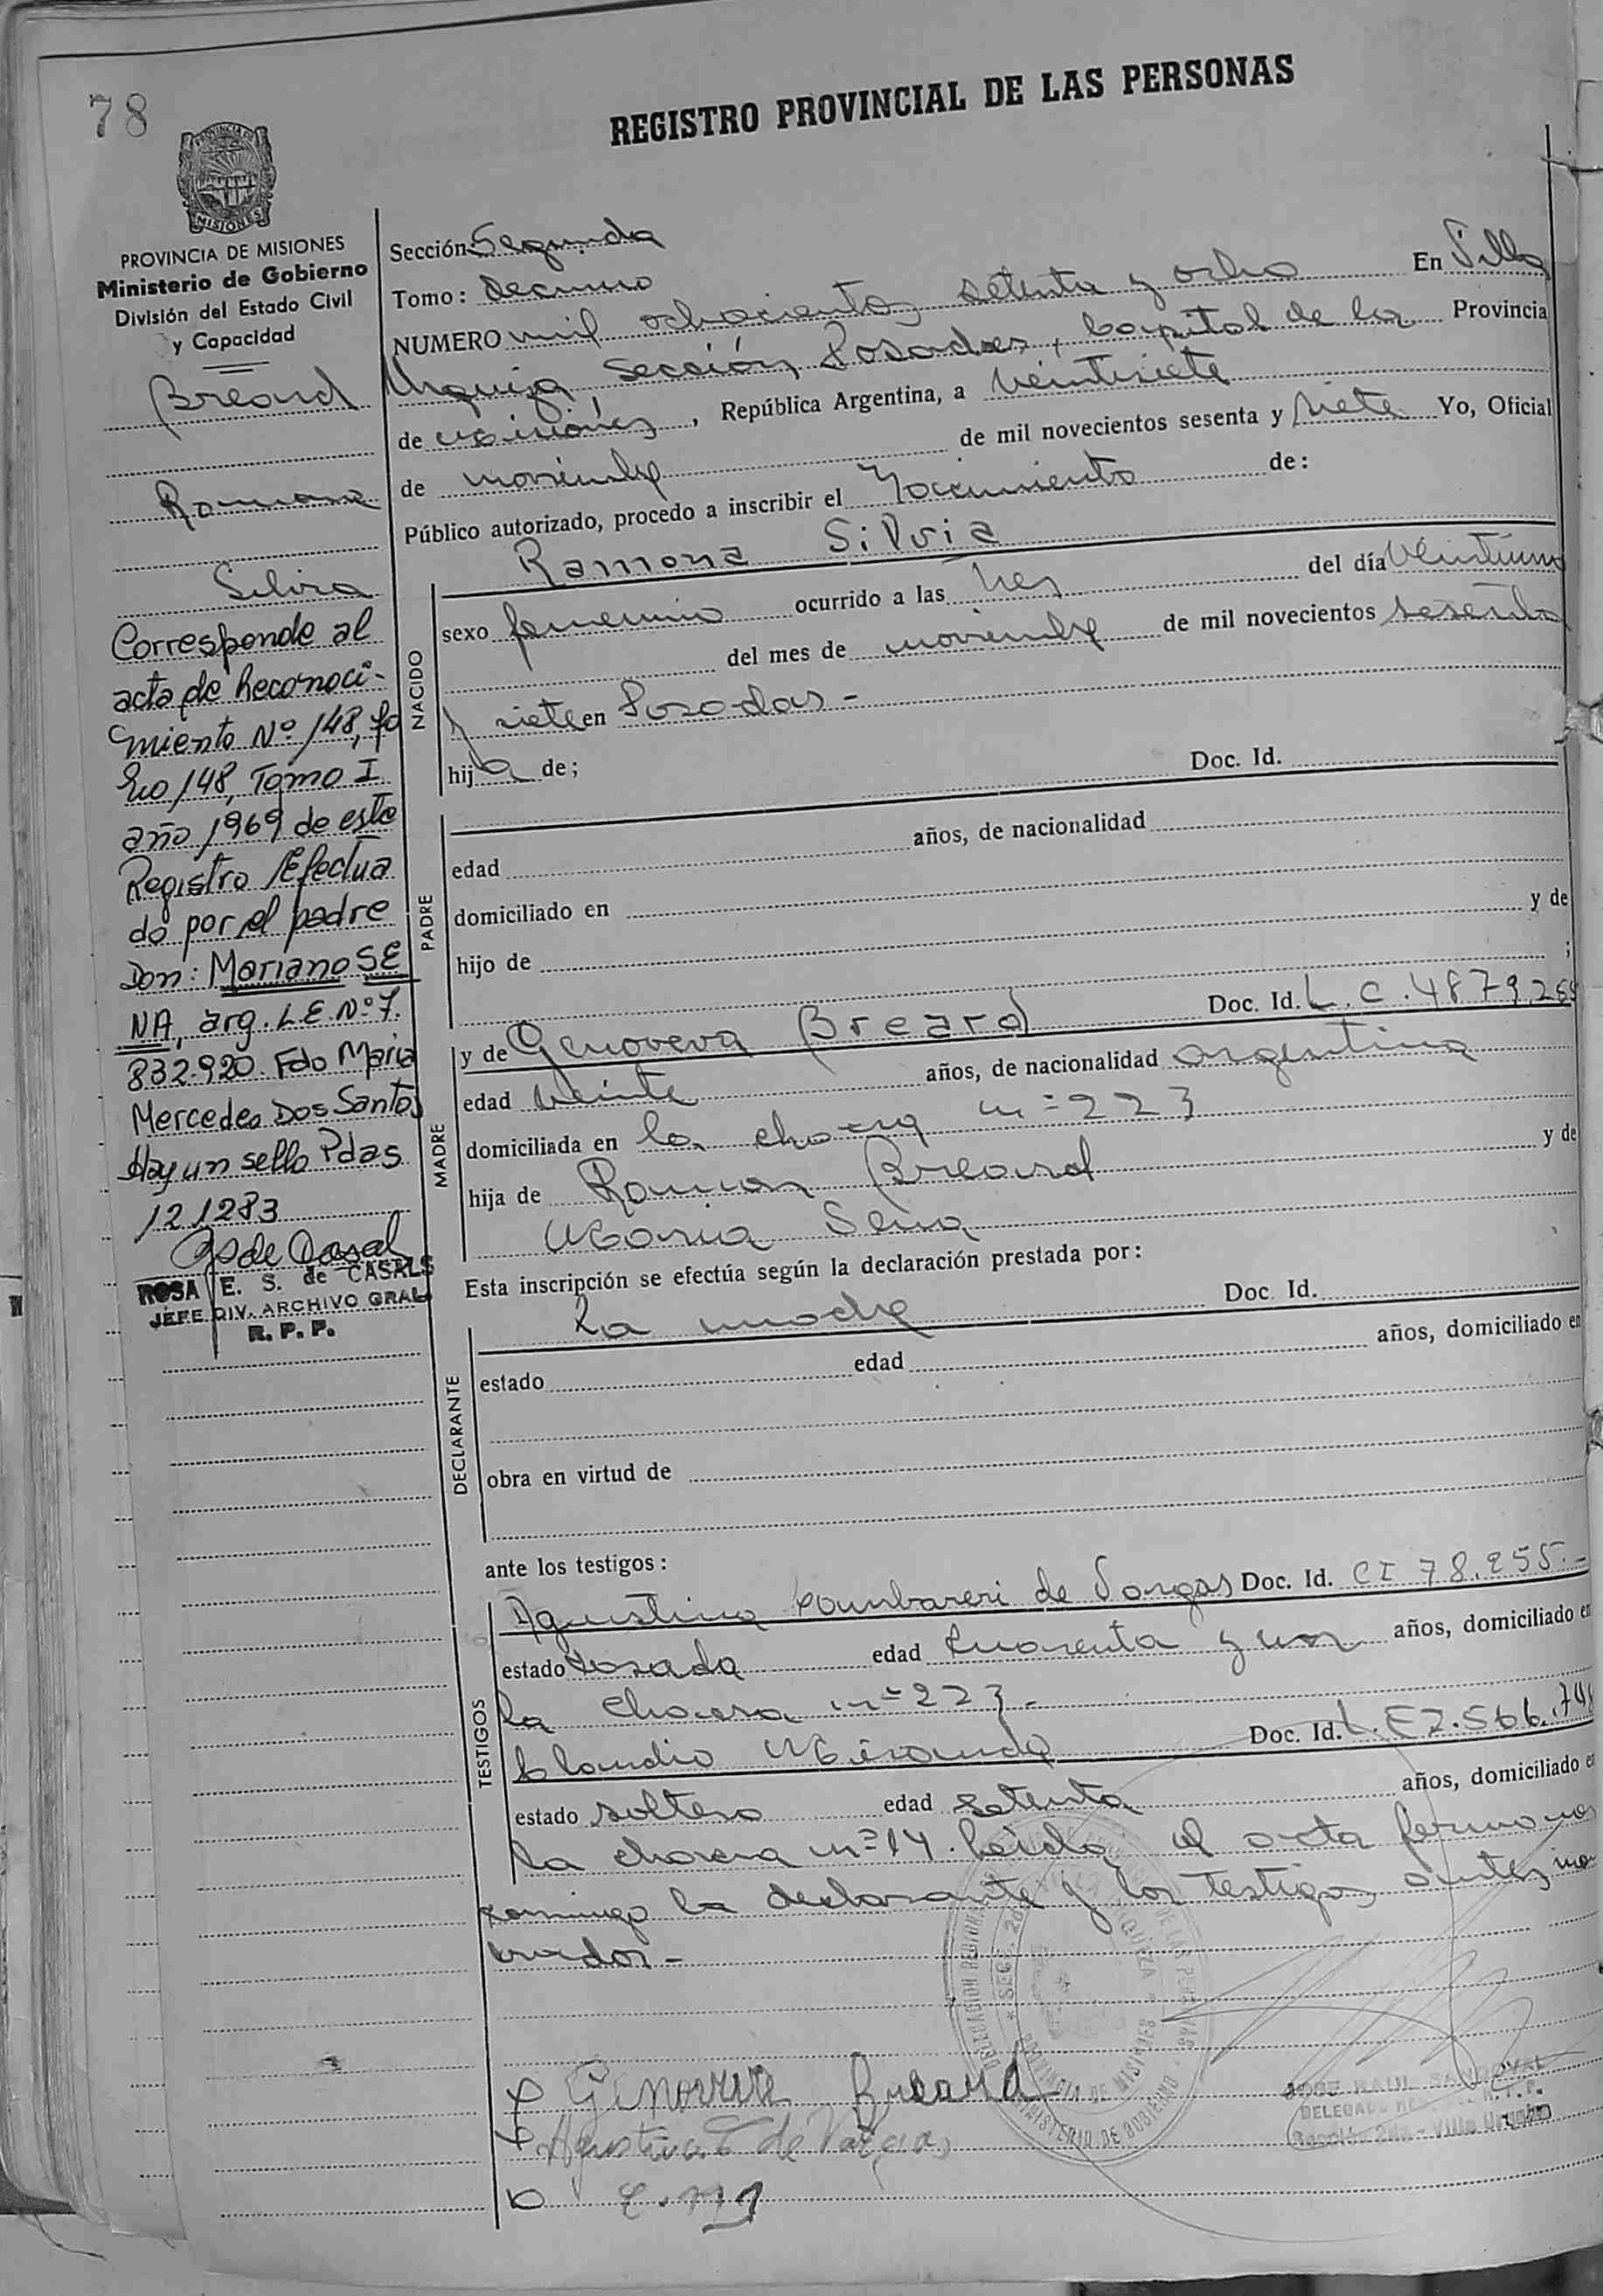 78
REGISTRO PROVINCIAL DE LAS PERSONAS
PROVINCIA DE
MISIONES
PROVINCIA DE MISIONES
Ministerio de Gobierno
División del Estado Civil
y Capacidad
Breard
Ramona
Silvia
Corresponde al
acta de Reconoci-
miento Nº 148, fo
lio 148, Tomo I
año 1969 de este
Registro Efectua
do por el padre
Don: Mariano SE
NA, arg. L.E. Nº 7.
832.920. Fdo Maria
Mercedes Dos Santos
Hay un sello Pdas
121283
ROSA E. S. de CASALS
JEFE DIV. ARCHIVO GRAL.
R. P. P.
Sección: Segunda
Tomo: Decimo
NUMERO mil ochocientos setenta y ocho En Villa
Urquiza, Sección Posadas, Capital de la Provincia
de Misiones, República Argentina, a veintisiete
de noviembre de mil novecientos sesenta y siete Yo, Oficial
Público autorizado, procedo a inscribir el Nacimiento de:
Ramona Silvia
NACIDO
sexo femenino ocurrido a las tres del día veintiuno
del mes de noviembre de mil novecientos sesenta
y siete en Posadas -
hija de;
Doc. Id.
PADRE
edad años, de nacionalidad
domiciliado en
hijo de y de
;
MADRE
y de Genoveva Breard Doc. Id. L.C. 4879.2
edad veinte años, de nacionalidad argentina
domiciliada en la chacra nº 223
hija de Ramon Breard y de
Maria Sena
Esta inscripción se efectúa según la declaración prestada por:
DECLARANTE
La madre Doc. Id.
estado edad años, domiciliado en
obra en virtud de
ante los testigos:
TESTIGOS
Agustina de Vargas Doc. Id. CI 78.255.-
estado casada edad cuarenta y un años, domiciliado en
la chacra nº 223 -
Claudio Miranda Doc. Id. L.E 7.566.748
estado soltero edad setenta años, domiciliado en
la chacra nº 14. Leida el acta firmanos
conmigo la declarante y los testigos antes nom
brados -
DELEGACION REGIONAL DE LAS PERSONAS
SECC. 2da URQUIZA
PROVINCIA DE MISIONES
MINISTERIO DE GOBIERNO
Genoveva Breard
Agustina C de Vargas
JOSE RAUL SANDOVAL
DELEGADO
Sección 2da - Villa Urquiza